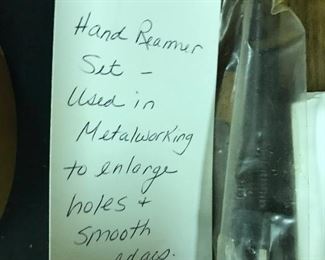 Hand Reamer
Set -
Used in
Metalworking
to enlarge
holes &
smooth
edges.